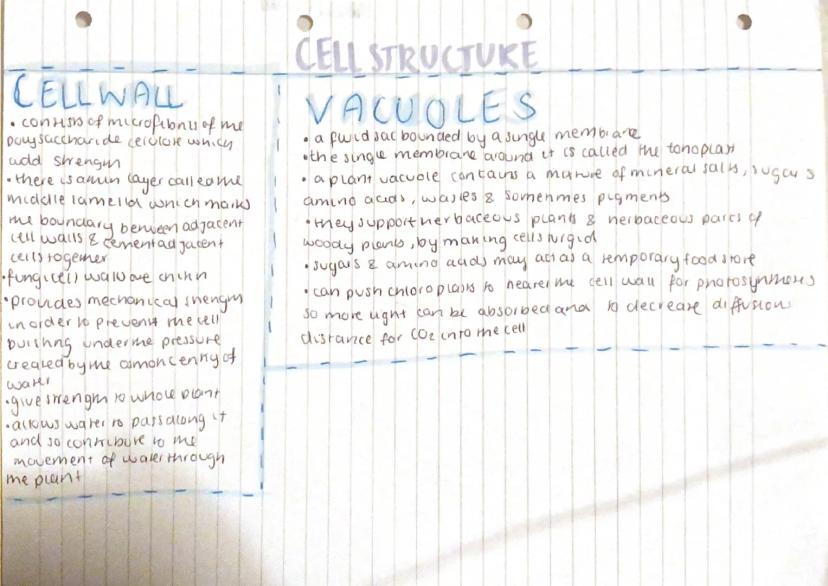 CELL STRUCTURE
CELL WALL
• consists of microfibrils of the
polysaccharide cellulose which
add strength
• there is a thin layer called the
middle lamella which marks
the boundary between adjacent
cell walls & cement adjacent
cells together
• fungi cell walls are chitin
• provides mechanical strength
in order to prevent the cell
bursting under the pressure
created by the osmotic entry of
water
• give strength to whole plant
• allows water to pass along it
and so contribute to the
movement of water through
the plant
VACUOLES
• a fluid sac bounded by a single membrane
• the single membrane around it is called the tonoplast
• a plant vacuole contains a mixture of mineral salts, sugars
amino acids, wastes & sometimes pigments
• they support herbaceous plants & herbaceous parts of
woody plants, by making cells turgid
• sugars & amino acids may act as a temporary food store
• can push chloroplasts to nearer the cell wall for photosynthesis
so more light can be absorbed and to decrease diffusion
distance for CO2 into the cell